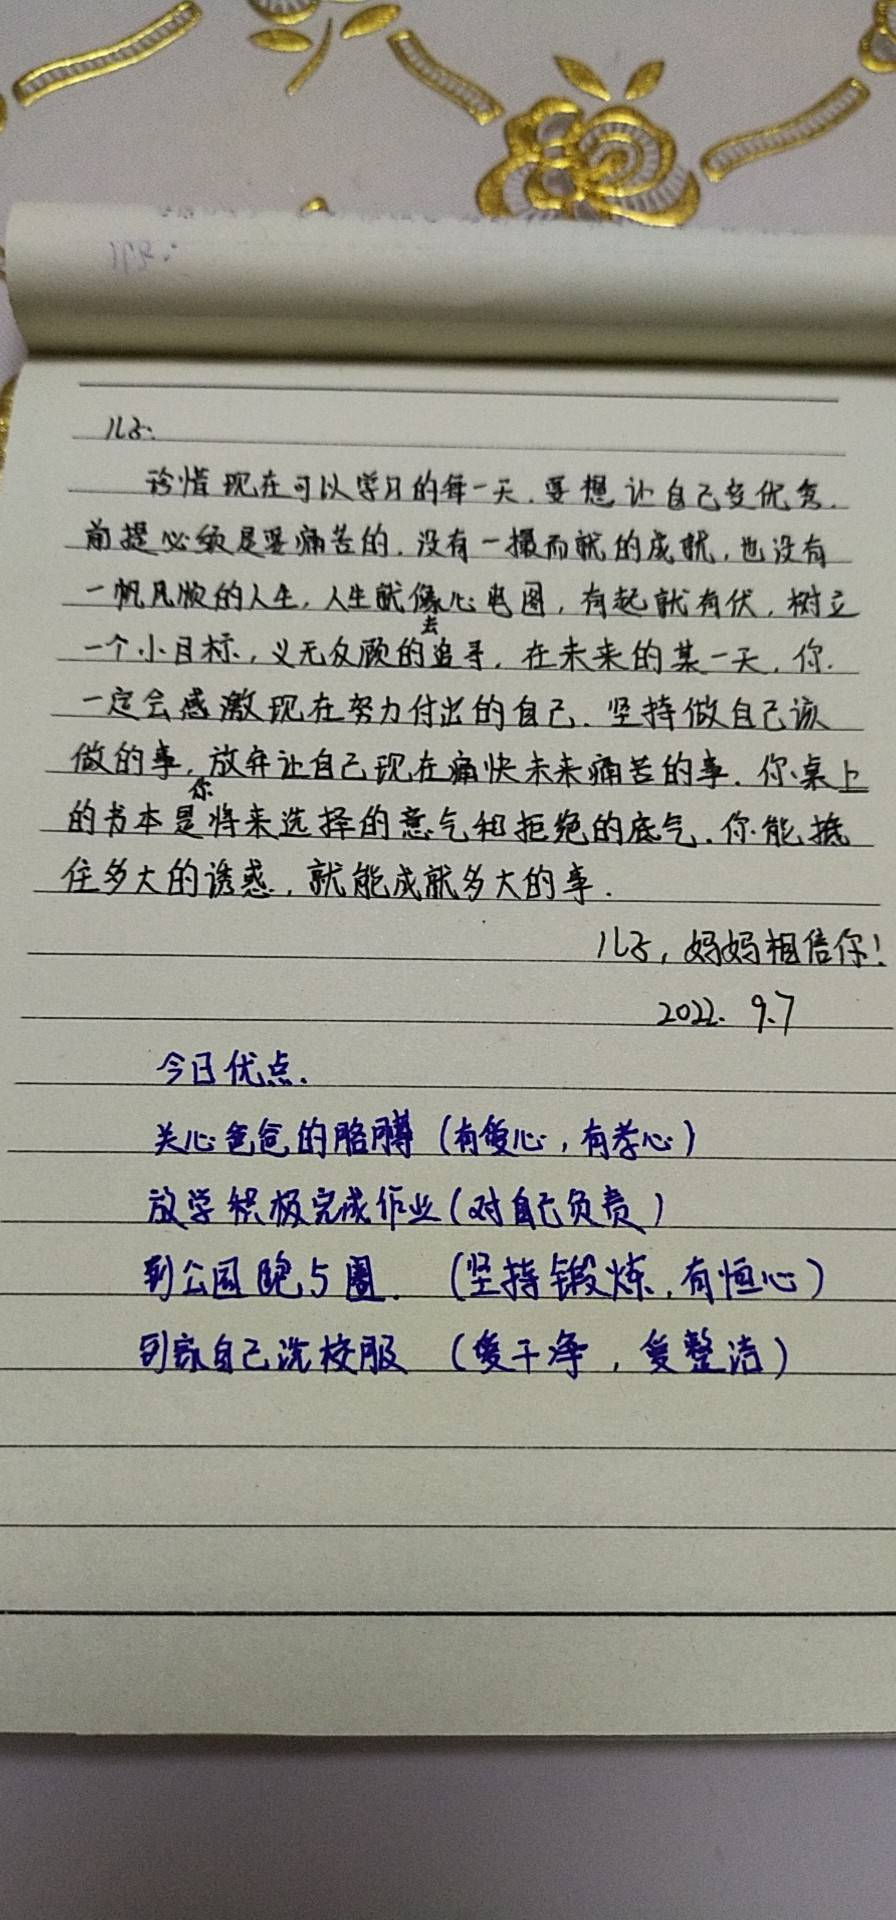 儿子:
珍惜现在可以学习的每一天.要想让自己变优秀.
前提必须是要痛苦的.没有一撮而就的成就,也没有
一帆风顺的人生,人生就像心电图,有起就有伏,树立
一个小目标,义无反顾的去追寻,在未来的某一天,你.
一定会感激现在努力付出的自己.坚持做自己该
做的事,放弃让自己现在痛快未来痛苦的事.你桌上
的书本是你将来选择的意气和拒绝的底气.你能抵
住多大的诱惑,就能成就多大的事.
儿子,妈妈相信你!
2022.9.7
今日优点.
关心爸爸的胳膊(有爱心,有孝心)
放学积极完成作业(对自己负责)
到公园跑5圈.(坚持锻炼,有恒心)
到家自己洗校服(爱干净,爱整洁)